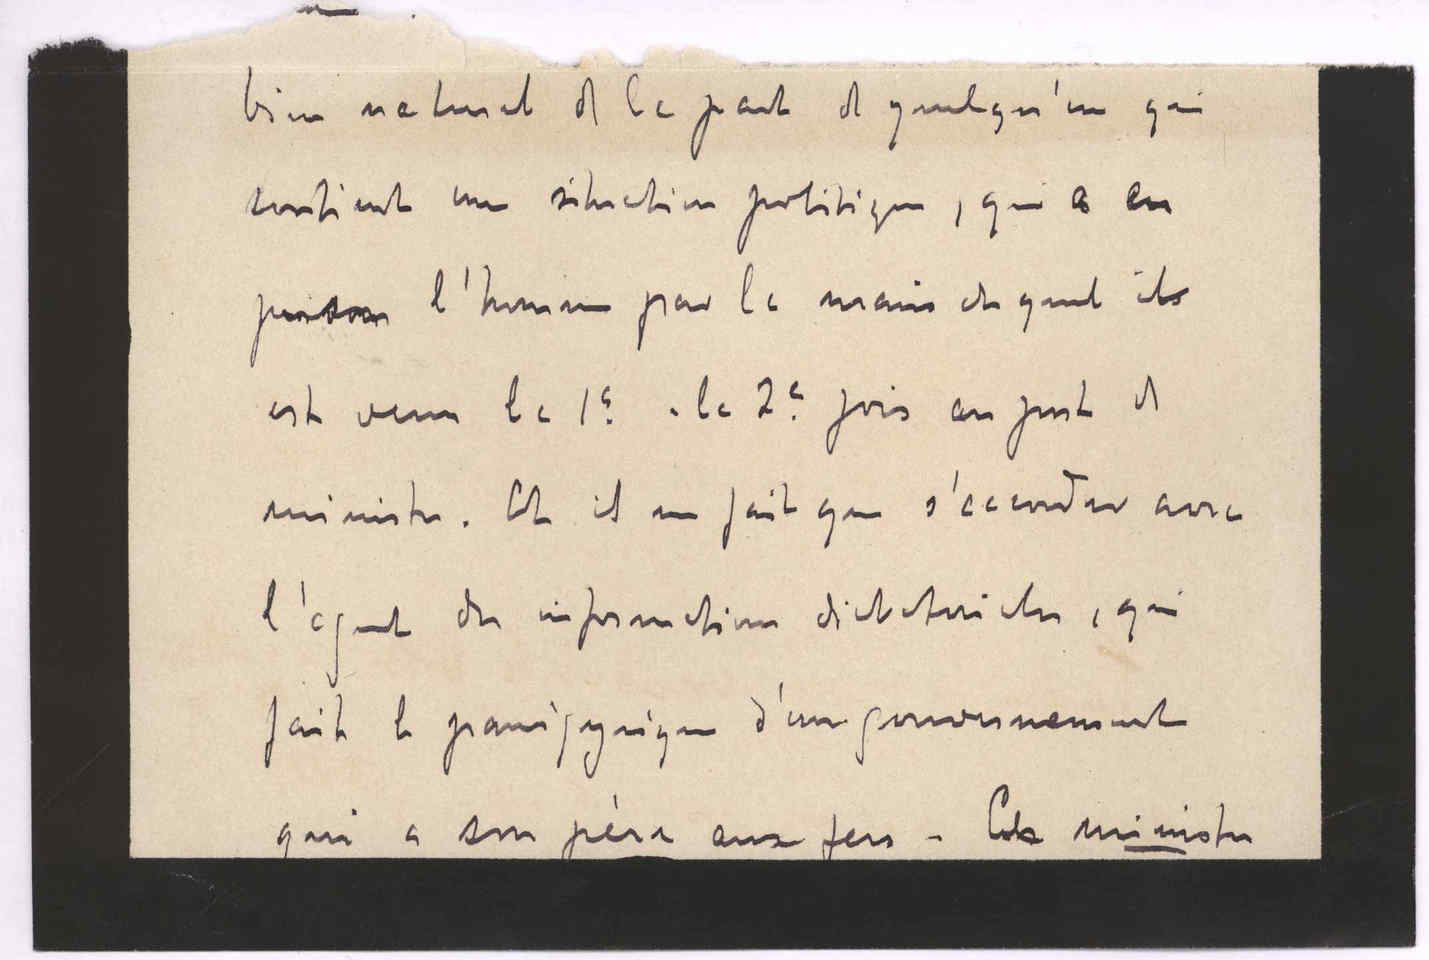 bien naturel de la part de quelqu'un qui
soutient une situation politique, qui a en
l'homme par la main duquel il
est venu la 1e. la 2e. fois au poste de
ministre. Et il ne fait que s'accorder avec
l'agent des informations dictatoriales, qui
fait le panégyrique d'un gouvernement
qui a son père aux fers - ministre